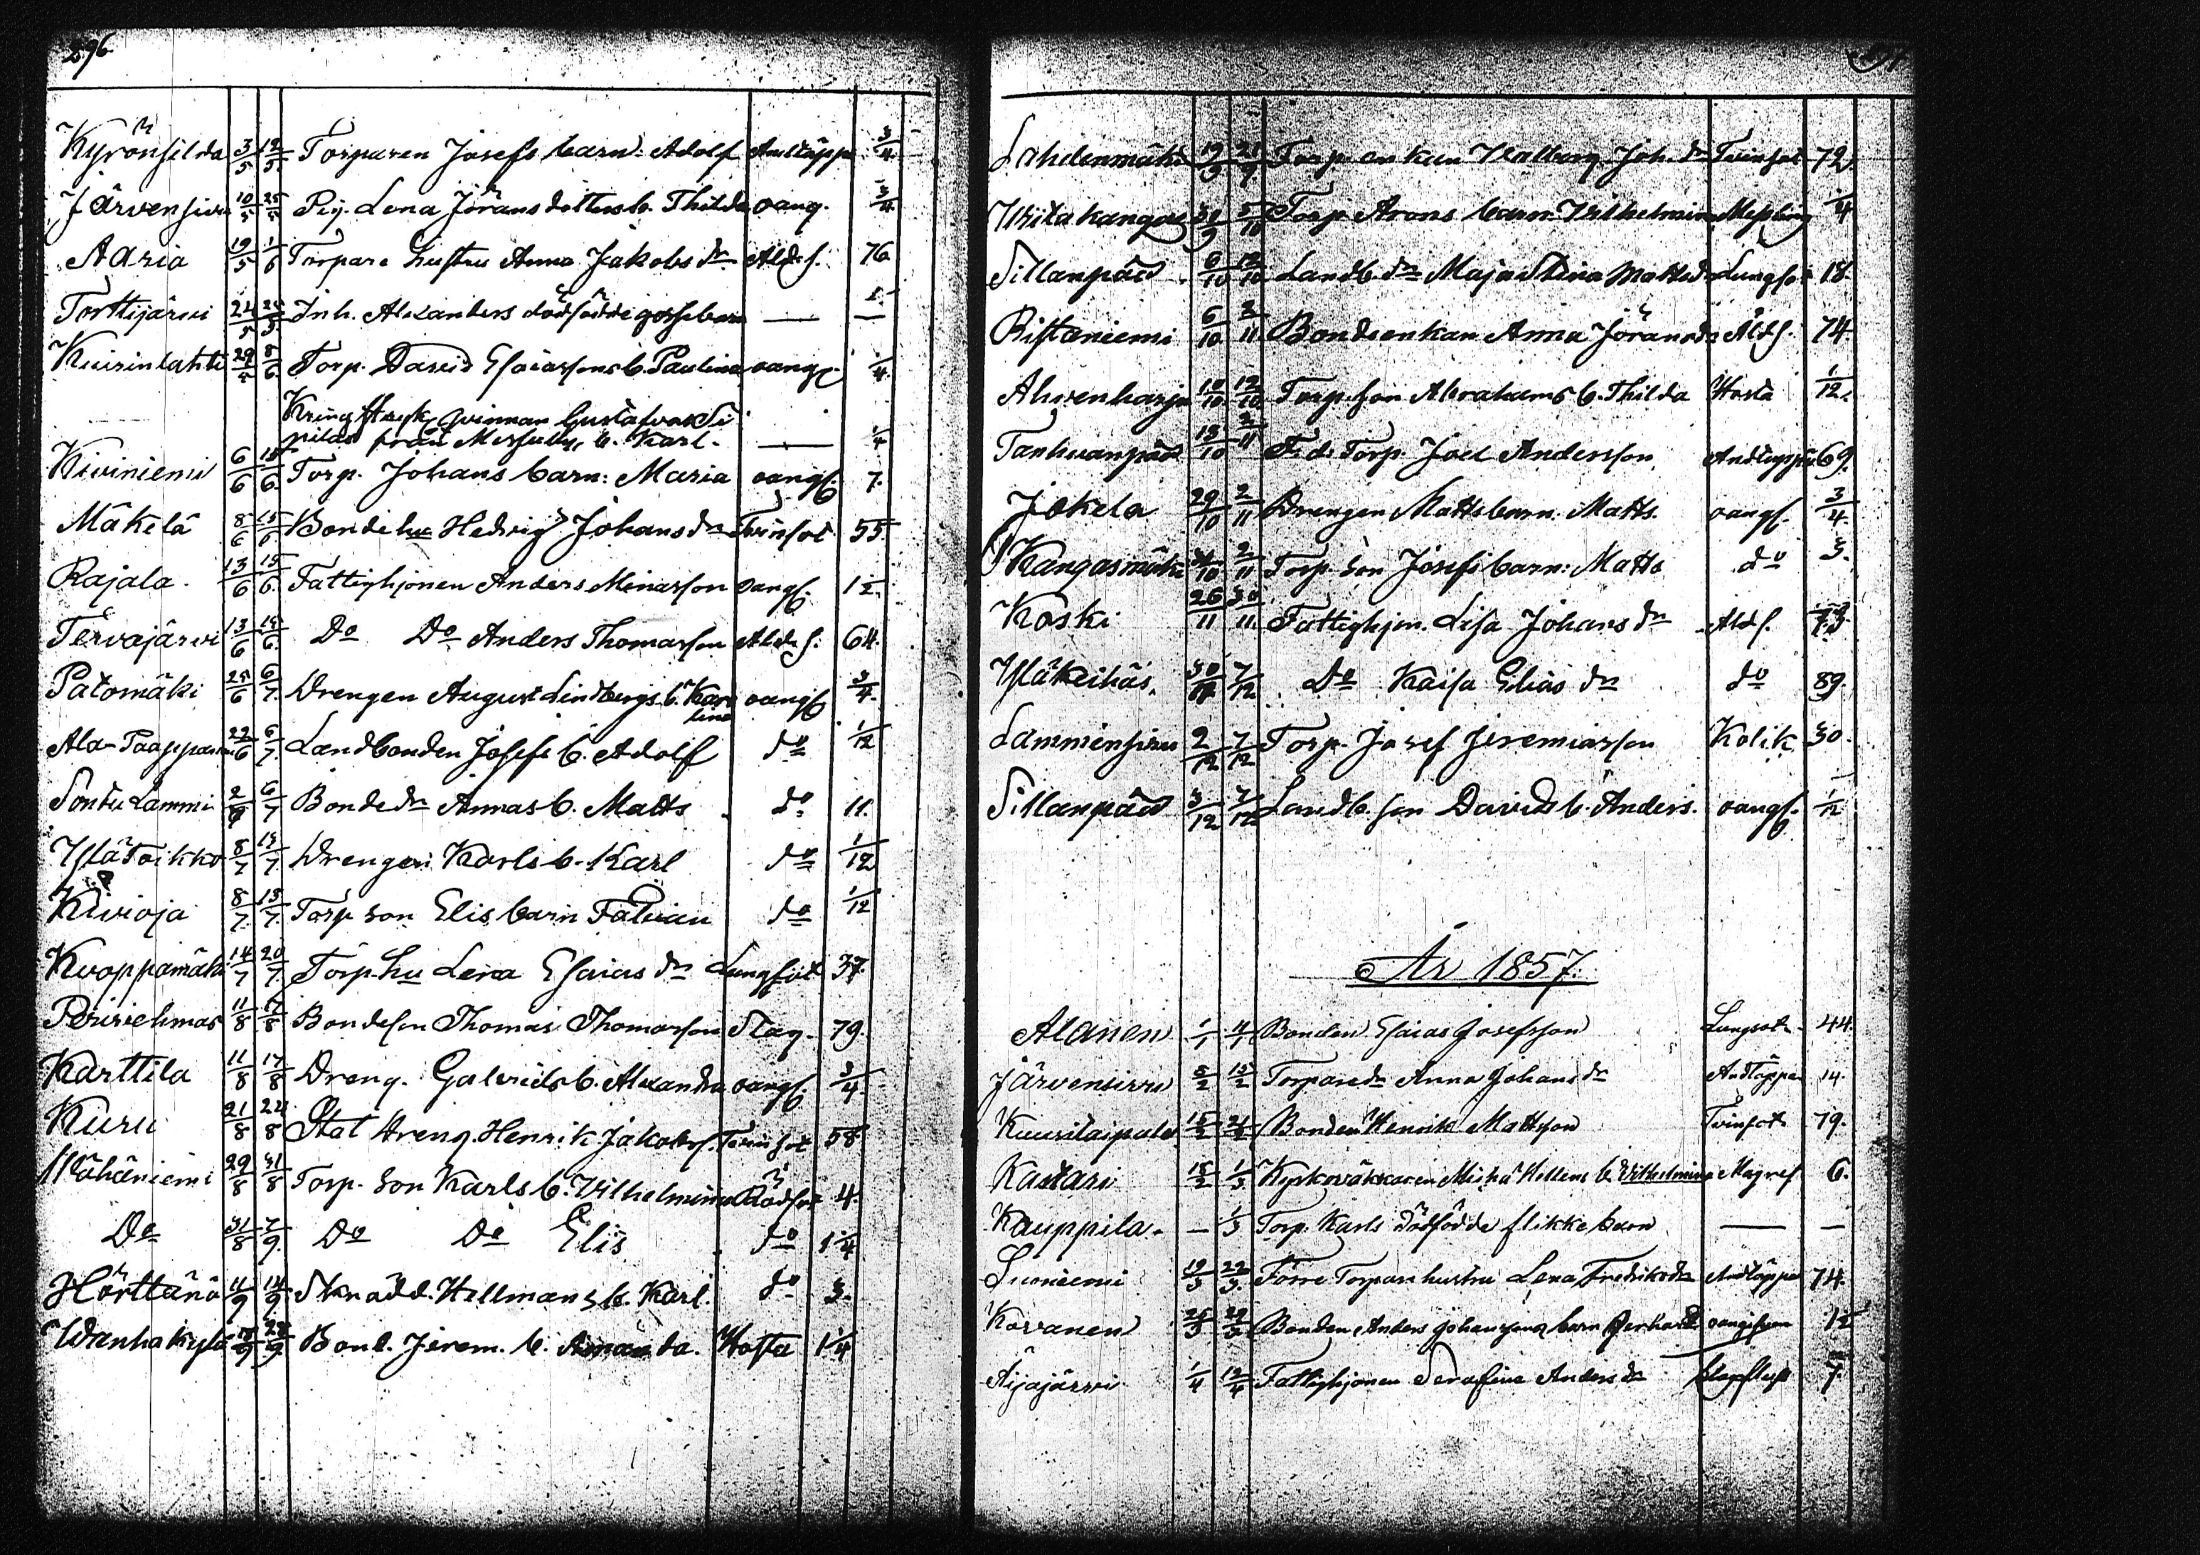 296
Kyrönsilda 3/5 12/5 Torparen Josefs barn: Adolf Andtäppa 3/4
Järvensivu 10/5 25/5 Pig. Lena Jöransdotters b. Thilda oang. 3/4
Adria 19/5 1/6 Torpare hustru Anna Jakobs dr Ald.s. 76
Torttijärvi 24/5 Inh. Alexanders dödfödde gossebarn — —
Kuivinlahti 29/5 8/6 Torp. David Esaiassons b. Paulina oangf. 1/4
Kringstryk. qvinnan Gustafva Si
pilas från Messuby, b. Karl. — 1/4
Kiviniemi 6/6 15/6 Torp. Johans barn: Maria oangf. 7.
Mäkelä 8/6 15/6 Bonde hu Hedvig Johans dr Tvinsot 55.
Rajala. 13/6 15/6 Fattighjonen Anders Minasson oangf. 12.
Tervajärvi 13/6 15/6 Do Do Anders Thomasson Ald.s. 64.
Patomäki 25/6 6/7 Drengen August Lindbergs b. Karo
lina oangf. 3/4
Ala-Paappanen 22/6 6/7 Landbonden Josefs b. Adolf do 1/12
Sontu Lammi 2/7 6/7 Bonde dr Annas b. Matts do 11.
Ylä Toikko 8/7 13/7 Drengen Karls b. Karl do 1/12
Kivioja 8/7 13/7 Torp. son Elis barn Fabian do 1/12
Kuoppamäki 14/7 20/7 Torp. hu Lena Esaias dr Lungsot 37.
Periviehmas 11/8 17/8 Bondeson Thomas Thomasson Slag. 79.
Karttila 11/8 17/8 Dreng. Gabriels b. Alexandra oangf. 3/4
Kuru 21/8 24/8 Stat dreng. Henrik Jakobs. Tvinsot 58
Vähäniemi 29/8 31/8 Torp. son Karls b. Vilhelmina Rödsot 4.
Do 31/8 7/9 Do Do Elis do 1 1/4
Hörttänä 11/9 14/9 Skrädd. Hellmans b. Karl. do 3.
Wanhakylä 18/9 Bond. Jerem. b. Amanda. Hosta 1 1/4
Lahdenmäki 19/9 21/9 Torp. enkan Valborg Joh. dr Tvinsot 72.
Viitakangas 30/9 5/10 Torp. Arons barn: Vilhelmina Messling 1/4
Sillanpää 6/10 12/10 Landb. dr Maja Stina Matts dr Lungsot 18.
Ristaniemi 6/10 2/11 Bondeenkan Anna Jörans dr Ald.s. 74.
Ahvenharju 10/10 12/10 Torp. son Abrahams b. Thilda Hosta 1/12.
Tanhuanpää 13/10 2/11 F. d. Torp. Joel Andersson Andtäppa 69.
Jokela 29/10 2/11 Drengen Matts barn. Matts. oangf. 3/4
Kangasmäki 31/10 2/11 Torp. son Josefs barn: Matts do 3.
Koski 26/11 30/11 Fattighjon. Lisa Johans dr Ald.s.
Yläkeihäs. 30/11 7/12 Do Kaisa Elias dr do 89.
Lammensivu 2/12 7/12 Torp. Josef Jeremiasson Kolik 30.
Sillanpää 3/12 7/12 Landb. son Davids b. Anders. oangf. 1/12
År 1857.
Alanen 1/1 4/1 Bonden Esaias Josefsson Lungsot. 44.
Järvensivu 8/2 15/2 Torpare dr Anna Johans dr Andtäppa 14.
Kuusilaipale 15/2 Bonden Henrik Mattsson Tvinsot 79.
Kastari 18/2 1/3 Kyrkoväktaren Mickä Hellens b. Vilhelmina Magref 6.
Kauppila. — 1/3 Torp. Karls dödfödde flikkebarn — —
Suniemi 19/3 22/3 Förre Torpare hustru Lena Fredriks dr Andtäppa 74.
Kovanen 25/3 29/3 Bonden Anders Johanssons barn Gerhard oangifven 12
Äijäjärvi 1/4 12/4 Fattighjonen Serafina Anders dr Slagfluss 7.